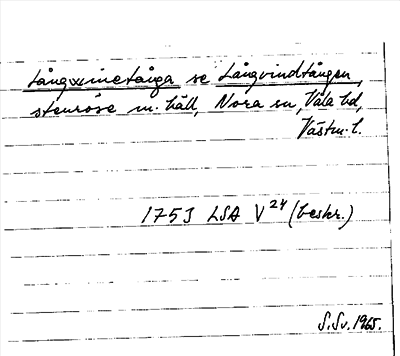 Långvinetånga se Långvindtången,
stenröse m. häll, Nora sn, Våla hd,
Västm. l.
1753 LSA V 24 (beskr.)
S.Sv. 1965.